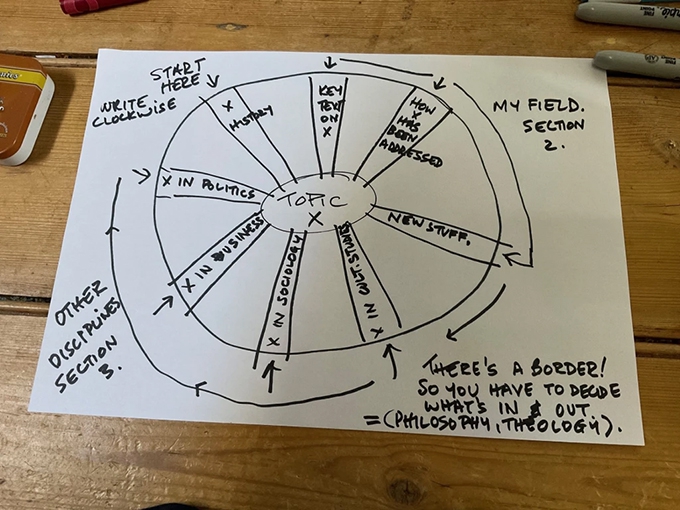 START
HERE
WRITE
CLOCKWISE
X
HISTORY
KEY
TEXT
ON
X
HOW
X
HAS
BEEN
ADDRESSED
MY FIELD.
SECTION
2.
X IN POLITICS
TOPIC
X
NEW STUFF.
X IN BUSINESS
X IN SOCIOLOGY
OTHER
DISCIPLINES
SECTION
3.
THERE'S A BORDER!
SO YOU HAVE TO DECIDE
WHAT'S IN & OUT
= (PHILOSOPHY, THEOLOGY).
FINE
POINT